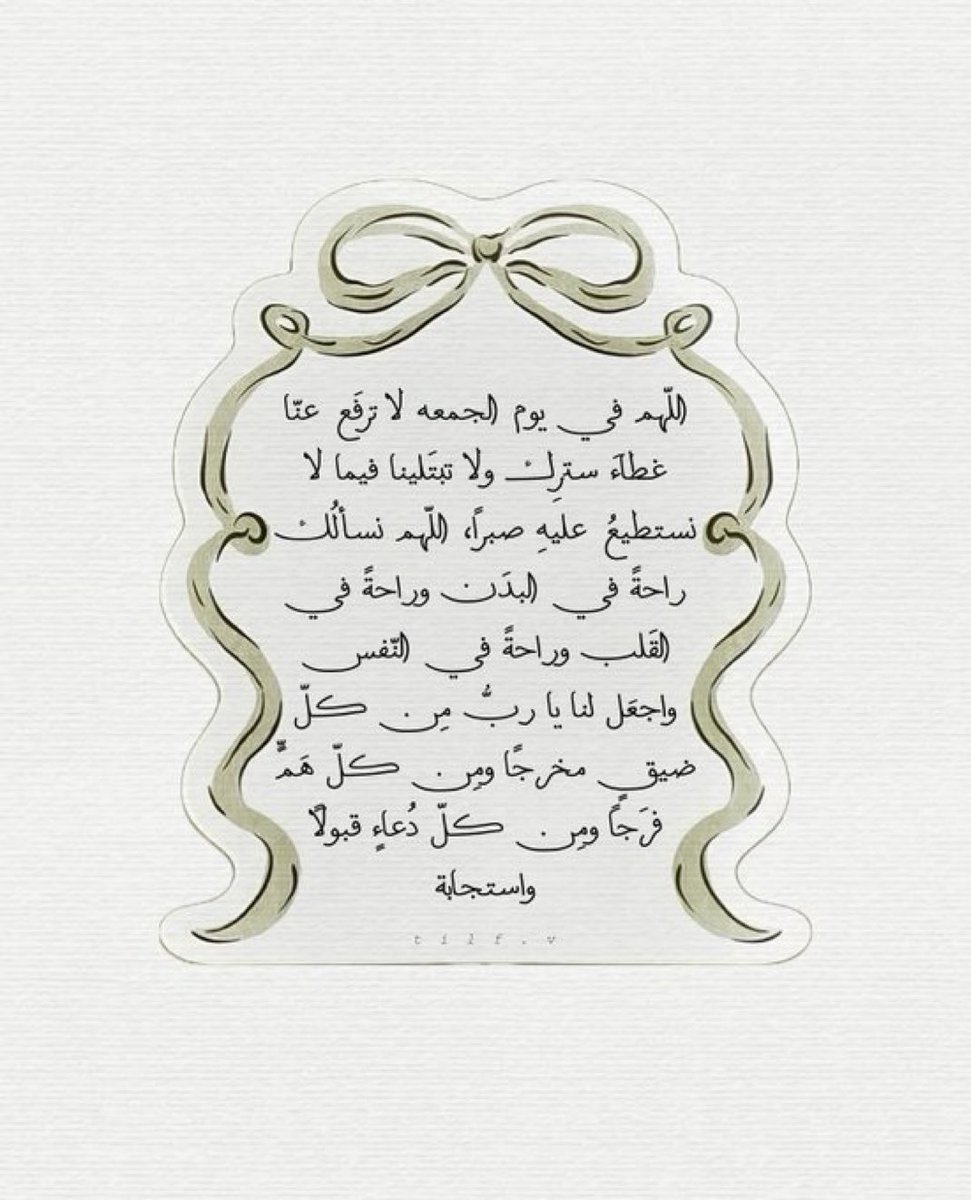 اللّهم في يوم الجمعه لا ترفَع عنّا
غطاءَ سترِك ولا تبتَلينا فيما لا
نستطيعُ عليهِ صبرًا، اللّهم نسألُك
راحةً في البدَن وراحةً في
القَلب وراحةً في النّفس
واجعَل لنا يا ربُّ مِن كلّ
ضيق مخرجًا ومِن كلّ هَمٍّ
فرَجًا ومِن كلّ دُعاءٍ قبولًا
واستجابة
tilf.v